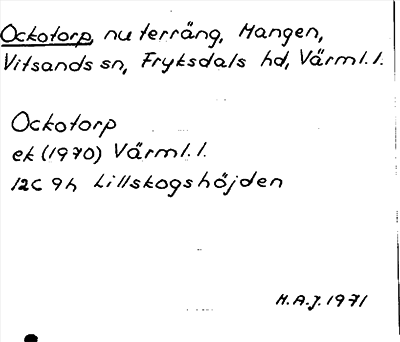 Ockotorp, nu terräng, Mangen,
Vitsands sn, Fryksdals hd, Värml. l.
Ockotorp
ek (1970) Värml. l.
12C 9h Lillskogshöjden
H.A.J. 1971